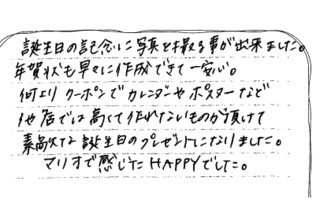 誕生日の記念に写真を撮る事が出来ました。
年賀状も早々に作成できて一安心。
何よりクーポンでカレンダーやポスターなど
他店では高くて作れないものが頂けて
素敵な誕生日のプレゼントになりました。
マリオで感じたHAPPYでした。